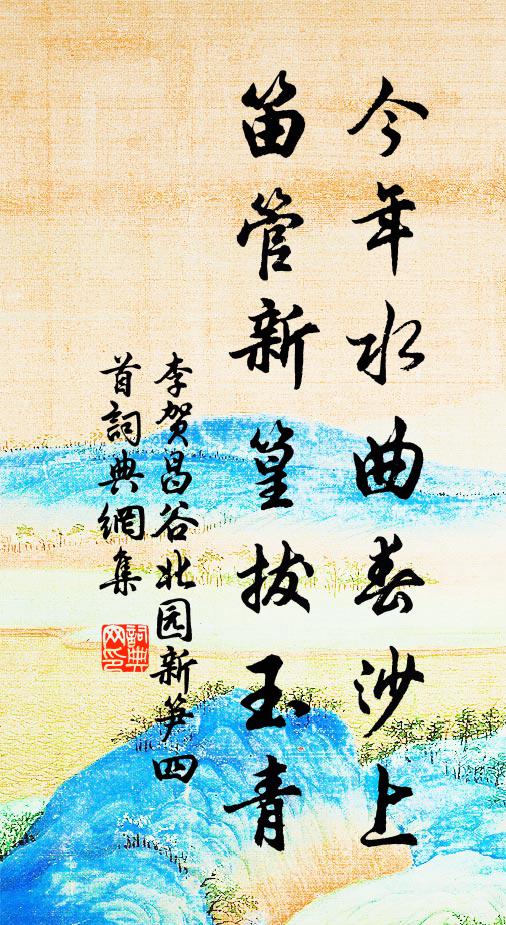 今年水曲春沙上
笛管新篁拔玉青
李贺昌谷北园新笋四
首詞典網集
詞典